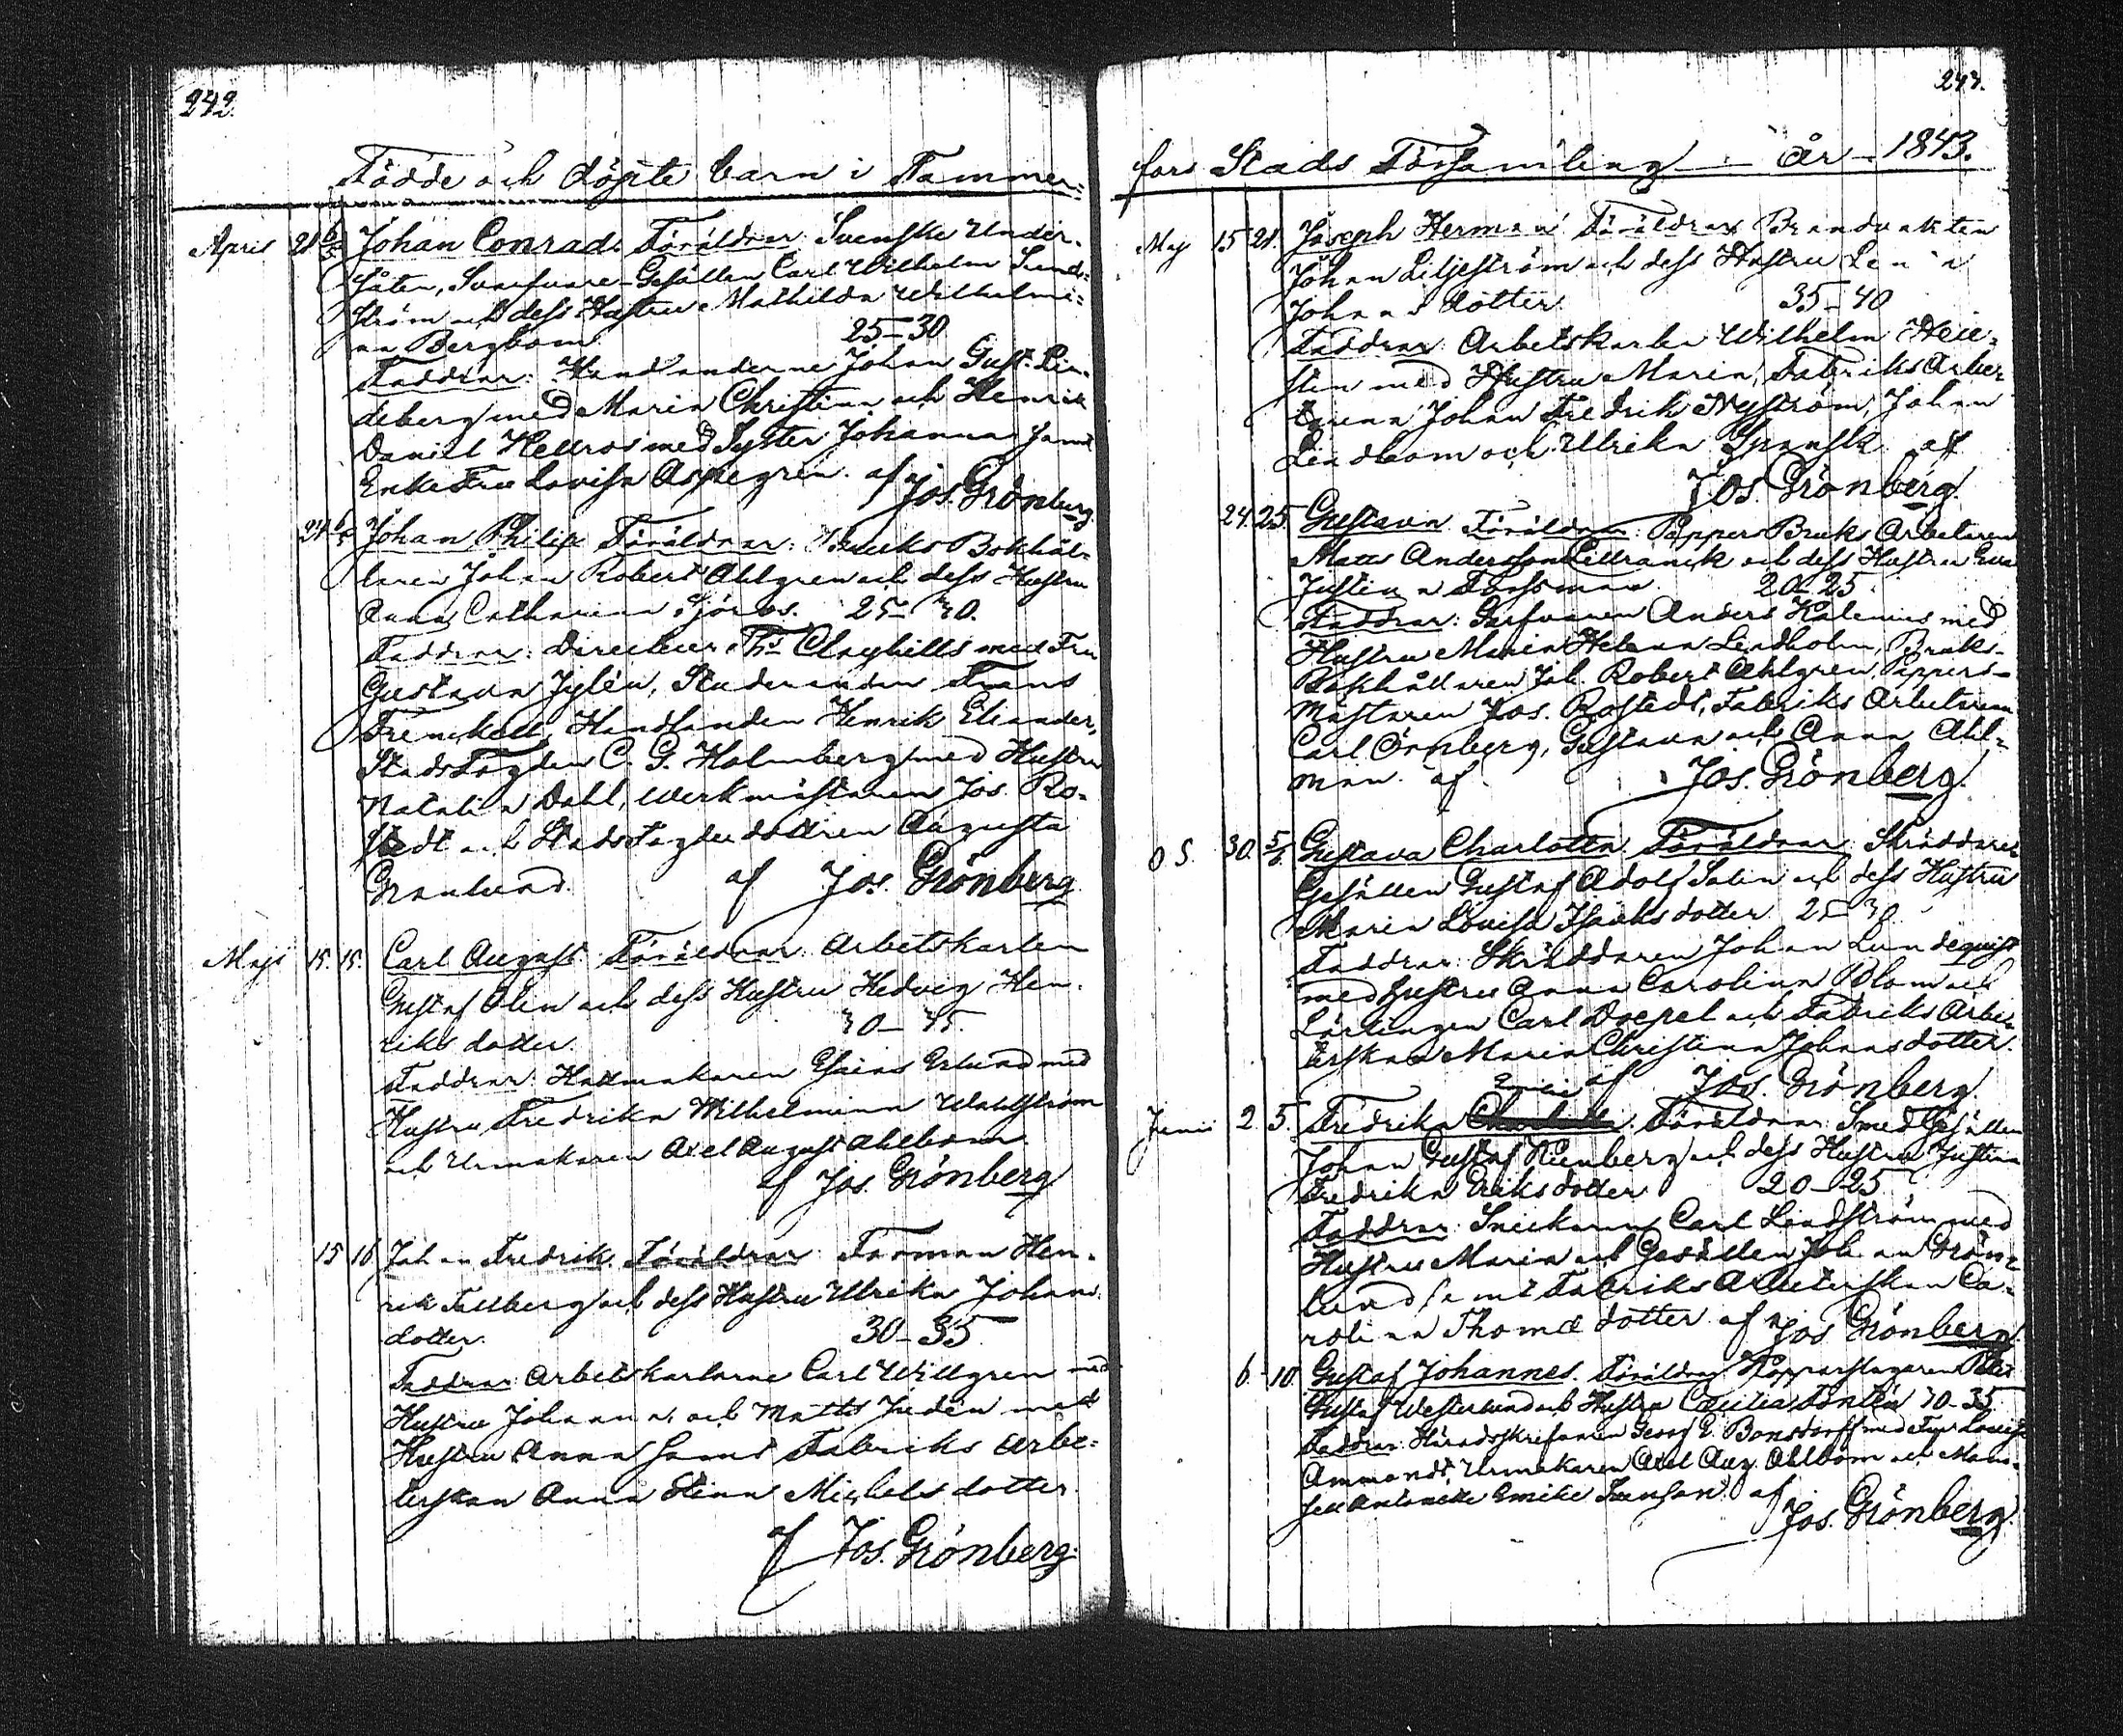 242.
Födde och döpte barn i Tammer=
April 21 6/5 Johan Conrad. Föräldrar: Svenske Under-
såten, Svarfvare-Gesällen Carl Wilhelm Sund=
ström och dess Hustru Mathilda Wilhelmi=
na Bergbom 25–30
Faddrar: Handlanderne Johan Gust. Lin-
deberg med Maria Christina och Henrik
Daniel Hellros med Syster Johanna samt
Enkefru Lovisa Aspegren. af Jos. Grönberg.
24 Johan Philip Föräldrar: Bruks Bokhål-
laren Johan Robert Ahlgren och dess Hustru
Anna Catharina 25–30.
Faddrar: Directeur Clayhills med Fru
Gustava Sylén, Studeranden Frans
Frenckell, Handlanden Henrik Eliander,
StadsFogden C. G. Holmberg med Hustru
Natalia Dahl, Werkmästaren Jos. Ro-
stedt och StadsFogdedottren Augusta
Granlund. af Jos. Grönberg
Maji 15. 15. Carl August. Föräldrar: Arbetskarlen
Gustaf Olen och dess Hustru Hedvig Hen-
riks dotter. 30–35.
Faddrar: Hattmakaren Esaias Eklund med
Hustru Fredrika Wilhelmina Wahlström
och Urmakaren Axel August Ahlbom.
af Jos. Grönberg
15 16 Johan Fredrik. Föräldrar: Forman Hen-
rik Tallberg och dess Hustru Ulrika Johans
dotter. 30–35
Faddrar: Arbetskarlarne Carl Willgren med
Hustru Johanna och Matts Judén med
Hustru Anna samt Fabriks Arbe=
terskan Anna Stina Michels dotter
af Jos. Grönberg.
243.
fors Stads Församling — år — 1843.
Maj 15 21. Joseph Herman Föräldrar Brandvakten
Johan Liljeström och dess Hustru Lena
Johans dotter 35–40
Faddrar: Arbetskarlen Wilhelm
sten med Hustru Maria, Fabriks Arbe=
tarena Johan Fredrik Nyström, Johan
Lindbom och Ulrika Spansk af
Jos Grönberg.
24. 25 Gustava Föräldrar: PappersBruks Arbetaren
Matts Andersson Lillranck och dess Hustru Eva
Justina Forssman 20–25.
Faddrar: Garfvaren Anders Kalenius med
Hustru Maria Helena Lindholm, Bruks-
Bokhållaren Joh. Robert Ahlgren, Pappers-
mästaren Jos. Rostedt, Fabriks Arbetaren
Carl Grönberg, Gustava och Anna Ahl=
man. af Jos. Grönberg.
O S. 30. 5/6 Gustava Charlotta Föräldrar: Skräddare
Gesällen Gustaf Adolf Salin och dess Hustru
Maria Lovisa Isaksdotter 25–30.
Faddrar: Skräddaren Johan Lundequist
med Hustru Anna Carolina Blom och
Lärlingen Carl Doepel och Fabriks Arbe-
terskan Maria Christina Johansdotter.
af Jos. Grönberg
Junii 2. 5. Fredrika Föräldrar: SmedGesällen
Johan Gustaf Runberg och dess Hustru Justina
Fredrika Eriksdotter 20–25
Faddrar: Snickaren Carl Lindström med
Hustru Maria och Gesällen Johan Grön=
lund samt Fabriks Arbeterskan Ca-
rolina Thomæ dotter. af Jos Grönberg
6. 10 Gustaf Johannes. Föräldrar Kopparslagaren Petter
Gustaf Westerlund och Hustru Cecilia 30–35
Faddrar: Häradsskrifvaren Georg E. Bonsdorff med Fru Lovisa
Ammondt, Urmakaren Axel Aug. Ahlbom och Mam-
sell Antonette Emilie Svensson. af
Jos. Grönberg.